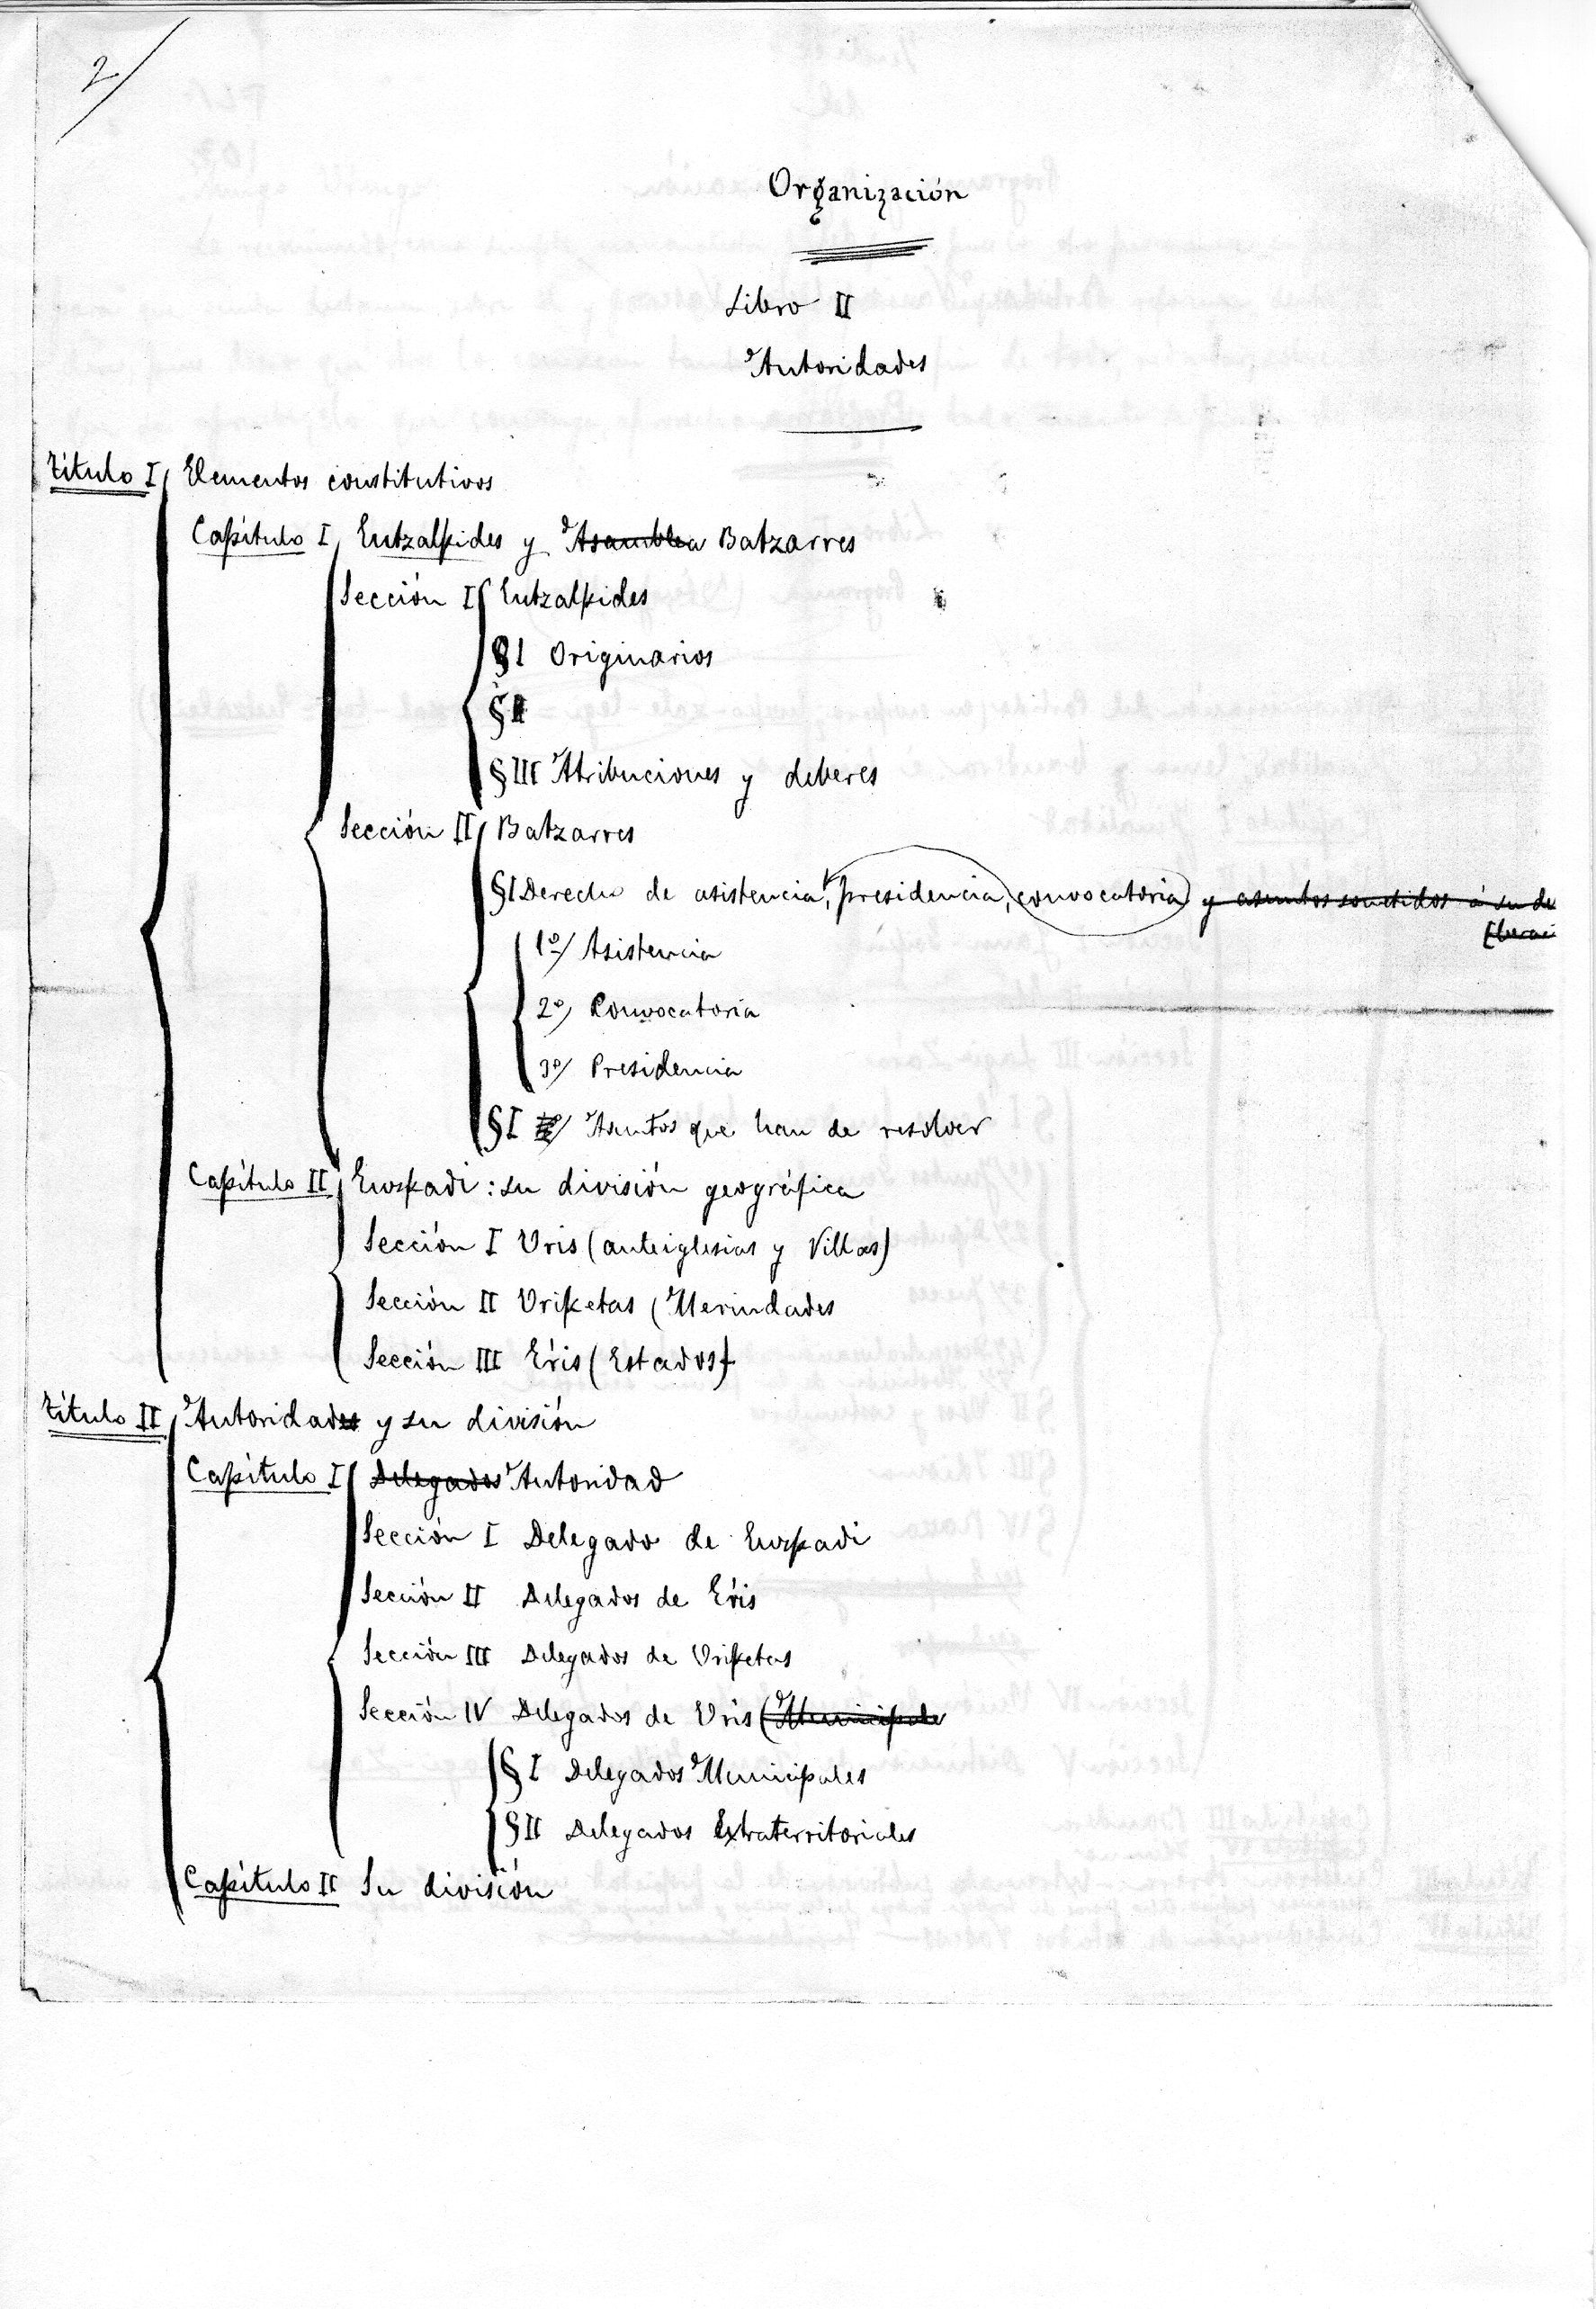 2/
Organización
Libro II
Autoridades
Título I Elementos constitutivos
Capítulo I Eutzalkides y Asamblea Batzarres
Sección I Eutzalkides
§ I Originarios
§ II
§ III Atribuciones y deberes
Sección II Batzarres
§ I Derecho de asistencia, presidencia, convocatoria y asuntos sometidos á su de
1º/ Asistencia
2º/ Convocatoria
3º/ Presidencia
§ I Asuntos que han de resolver
Capítulo II Euzkadi: su división geográfica
Sección I Uris (anteiglesias y Villas)
Sección II Uriketas (Merindades
Sección III Eŕis (Estados)
Título II Autoridades y su división
Capítulo I Delegados Autoridad
Sección I Delegado de Euzkadi
Sección II Delegados de Eŕis
Sección III Delegados de Uriketas
Sección IV Delegados de Uris (Municipale
§ I Delegados Municipales
§ II Delegados Extraterritoriales
Capítulo II Su división